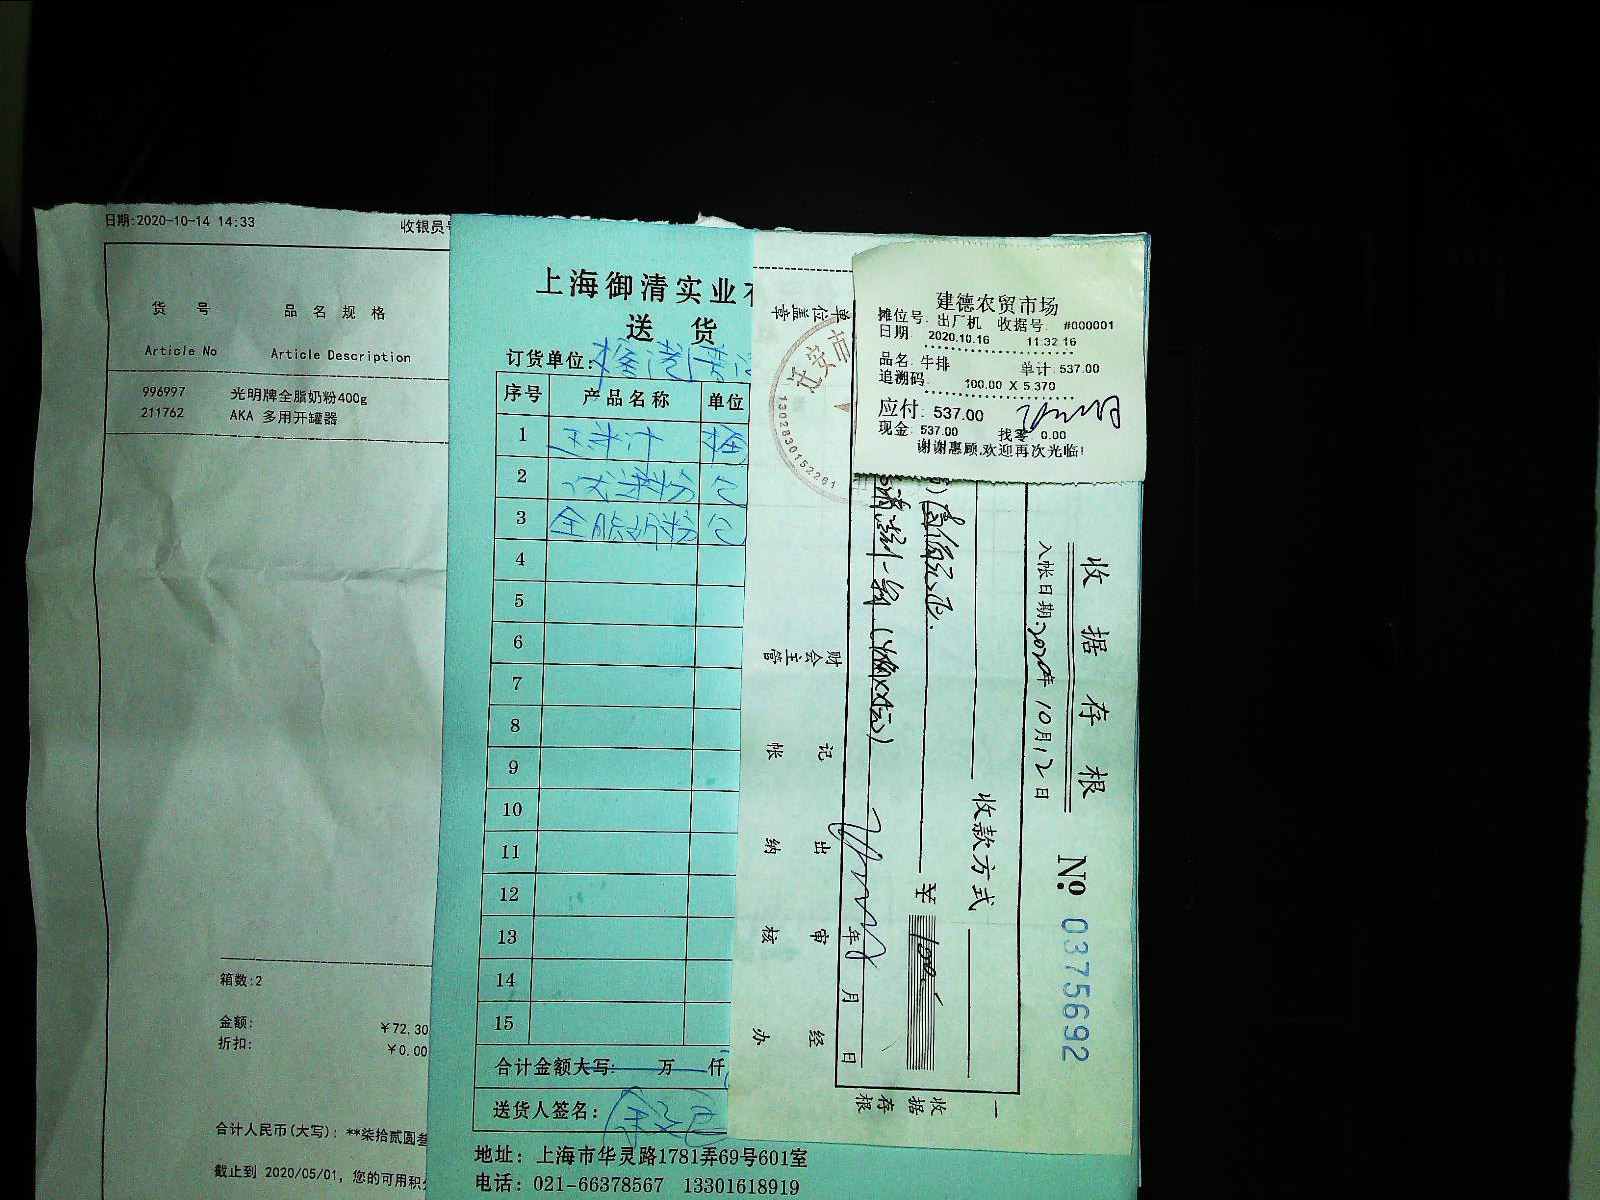 日期:2020-10-14 14:33
收银员号
货 号 品名规格
Article No Article Description
996997 光明牌全脂奶粉400g
211762 AKA 多用开罐器
箱数:2
金额: ￥72.30
折扣: ￥0.00
合计人民币(大写): **柒拾贰圆叁
截止到 2020/05/01, 您的可用积分
上海御清实业有
送 货
订货单位:
序号 产品名称 单位
1
2
3 全脂奶粉
4
5
6
7
8
9
10
11
12
13
14
15
合计金额大写: 万 仟
送货人签名:
地址: 上海市华灵路1781弄69号601室
电话: 021-66378567 13301618919
建德农贸市场
摊位号: 出厂机 收据号: #000001
日期: 2020.10.16 11:32:16
品名: 牛排 单计: 537.00
追溯码: 100.00 X 5.370
应付: 537.00
现金: 537.00 找零: 0.00
谢谢惠顾,欢迎再次光临!
收据存根
№ 0375692
入帐日期:2020年10月12日
收款方式
￥ 100
年 月 日
单位盖章
财会主管
记帐
出纳
审核
经办
迁安市
1302830152261
收据存根
一